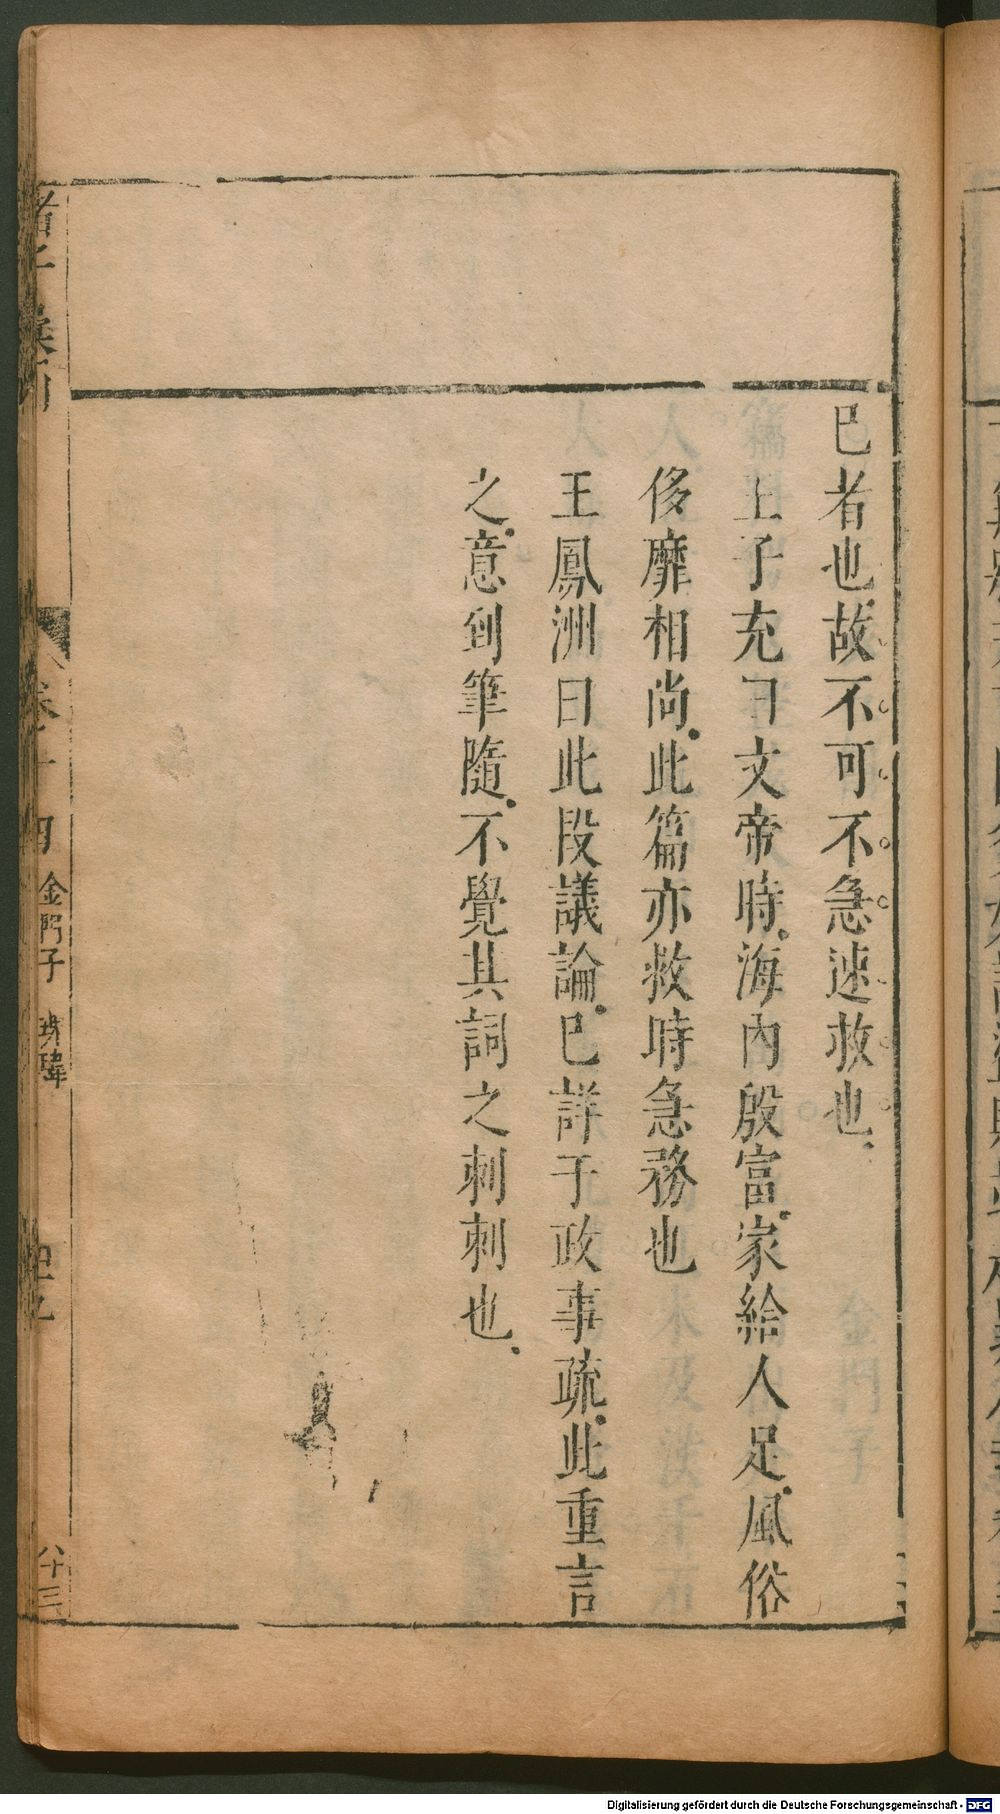 巳者也故不可不急速救也
王子充曰文帝時海內殷富家給人足風俗
侈靡相尚此篇亦救時急務也
王鳳洲曰此段議論巳詳于政事疏此重言
之意到筆隨不覺其詞之刺刺也
卷十四 金門子
八十三
Digitalisierung gefördert durch die Deutsche Forschungsgemeinschaft - DFG